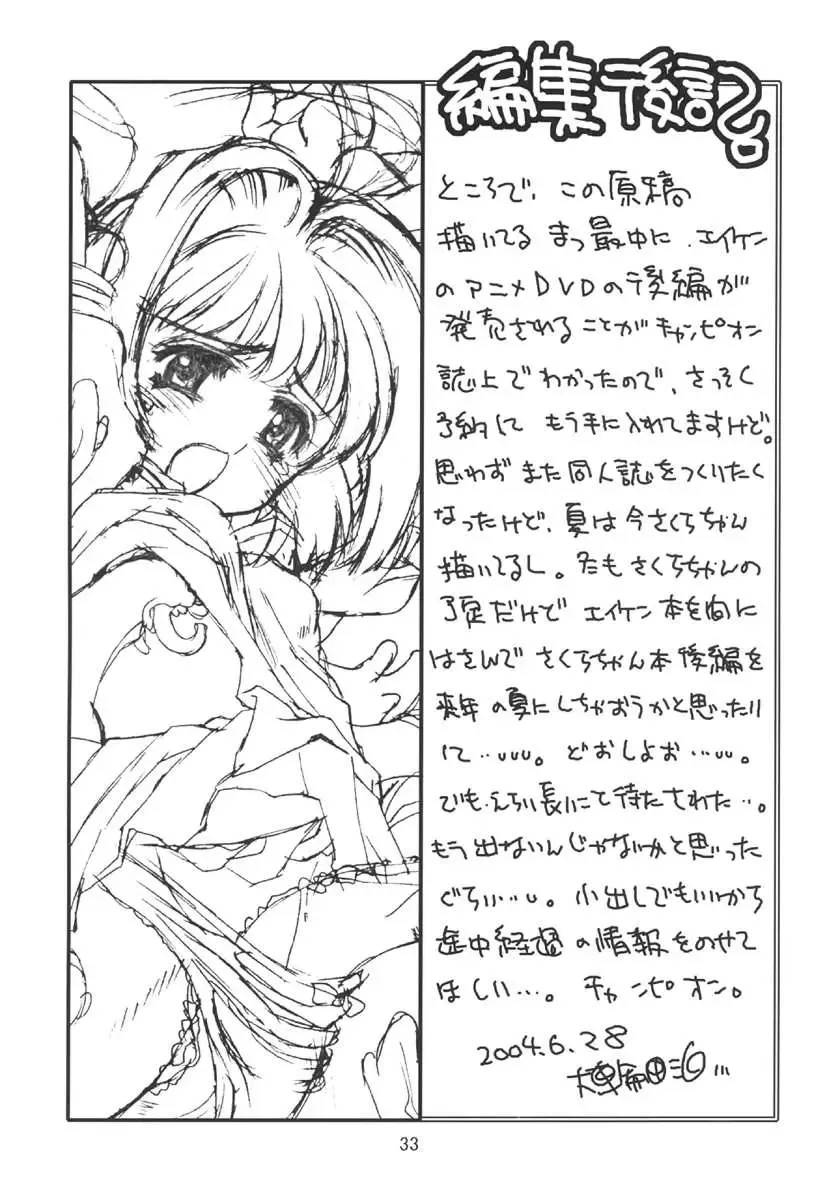 編集後記
ところで、この原稿
描いてるまっ最中に、エイケン
のアニメDVDの後編が
発売されることがチャンピオン
誌上でわかったので、さっそく
予約して もう手に入れてますけど。
思わず また同人誌をつくりたく
なったけど、夏は今さくらちゃん
描いてるし。冬もさくらちゃんの
予定だけど エイケン本を間に
はさんで さくらちゃん本後編を
来年の夏にしちゃおうかと思ったり
して…。どおしよお…。
でも、えらい長いこと待たされた…。
もう出ないんじゃないかと思った
ぐらい…。小出しでもいいから
途中経過の情報をのせて
ほしい…。チャンピオン。
2004.6.28
33